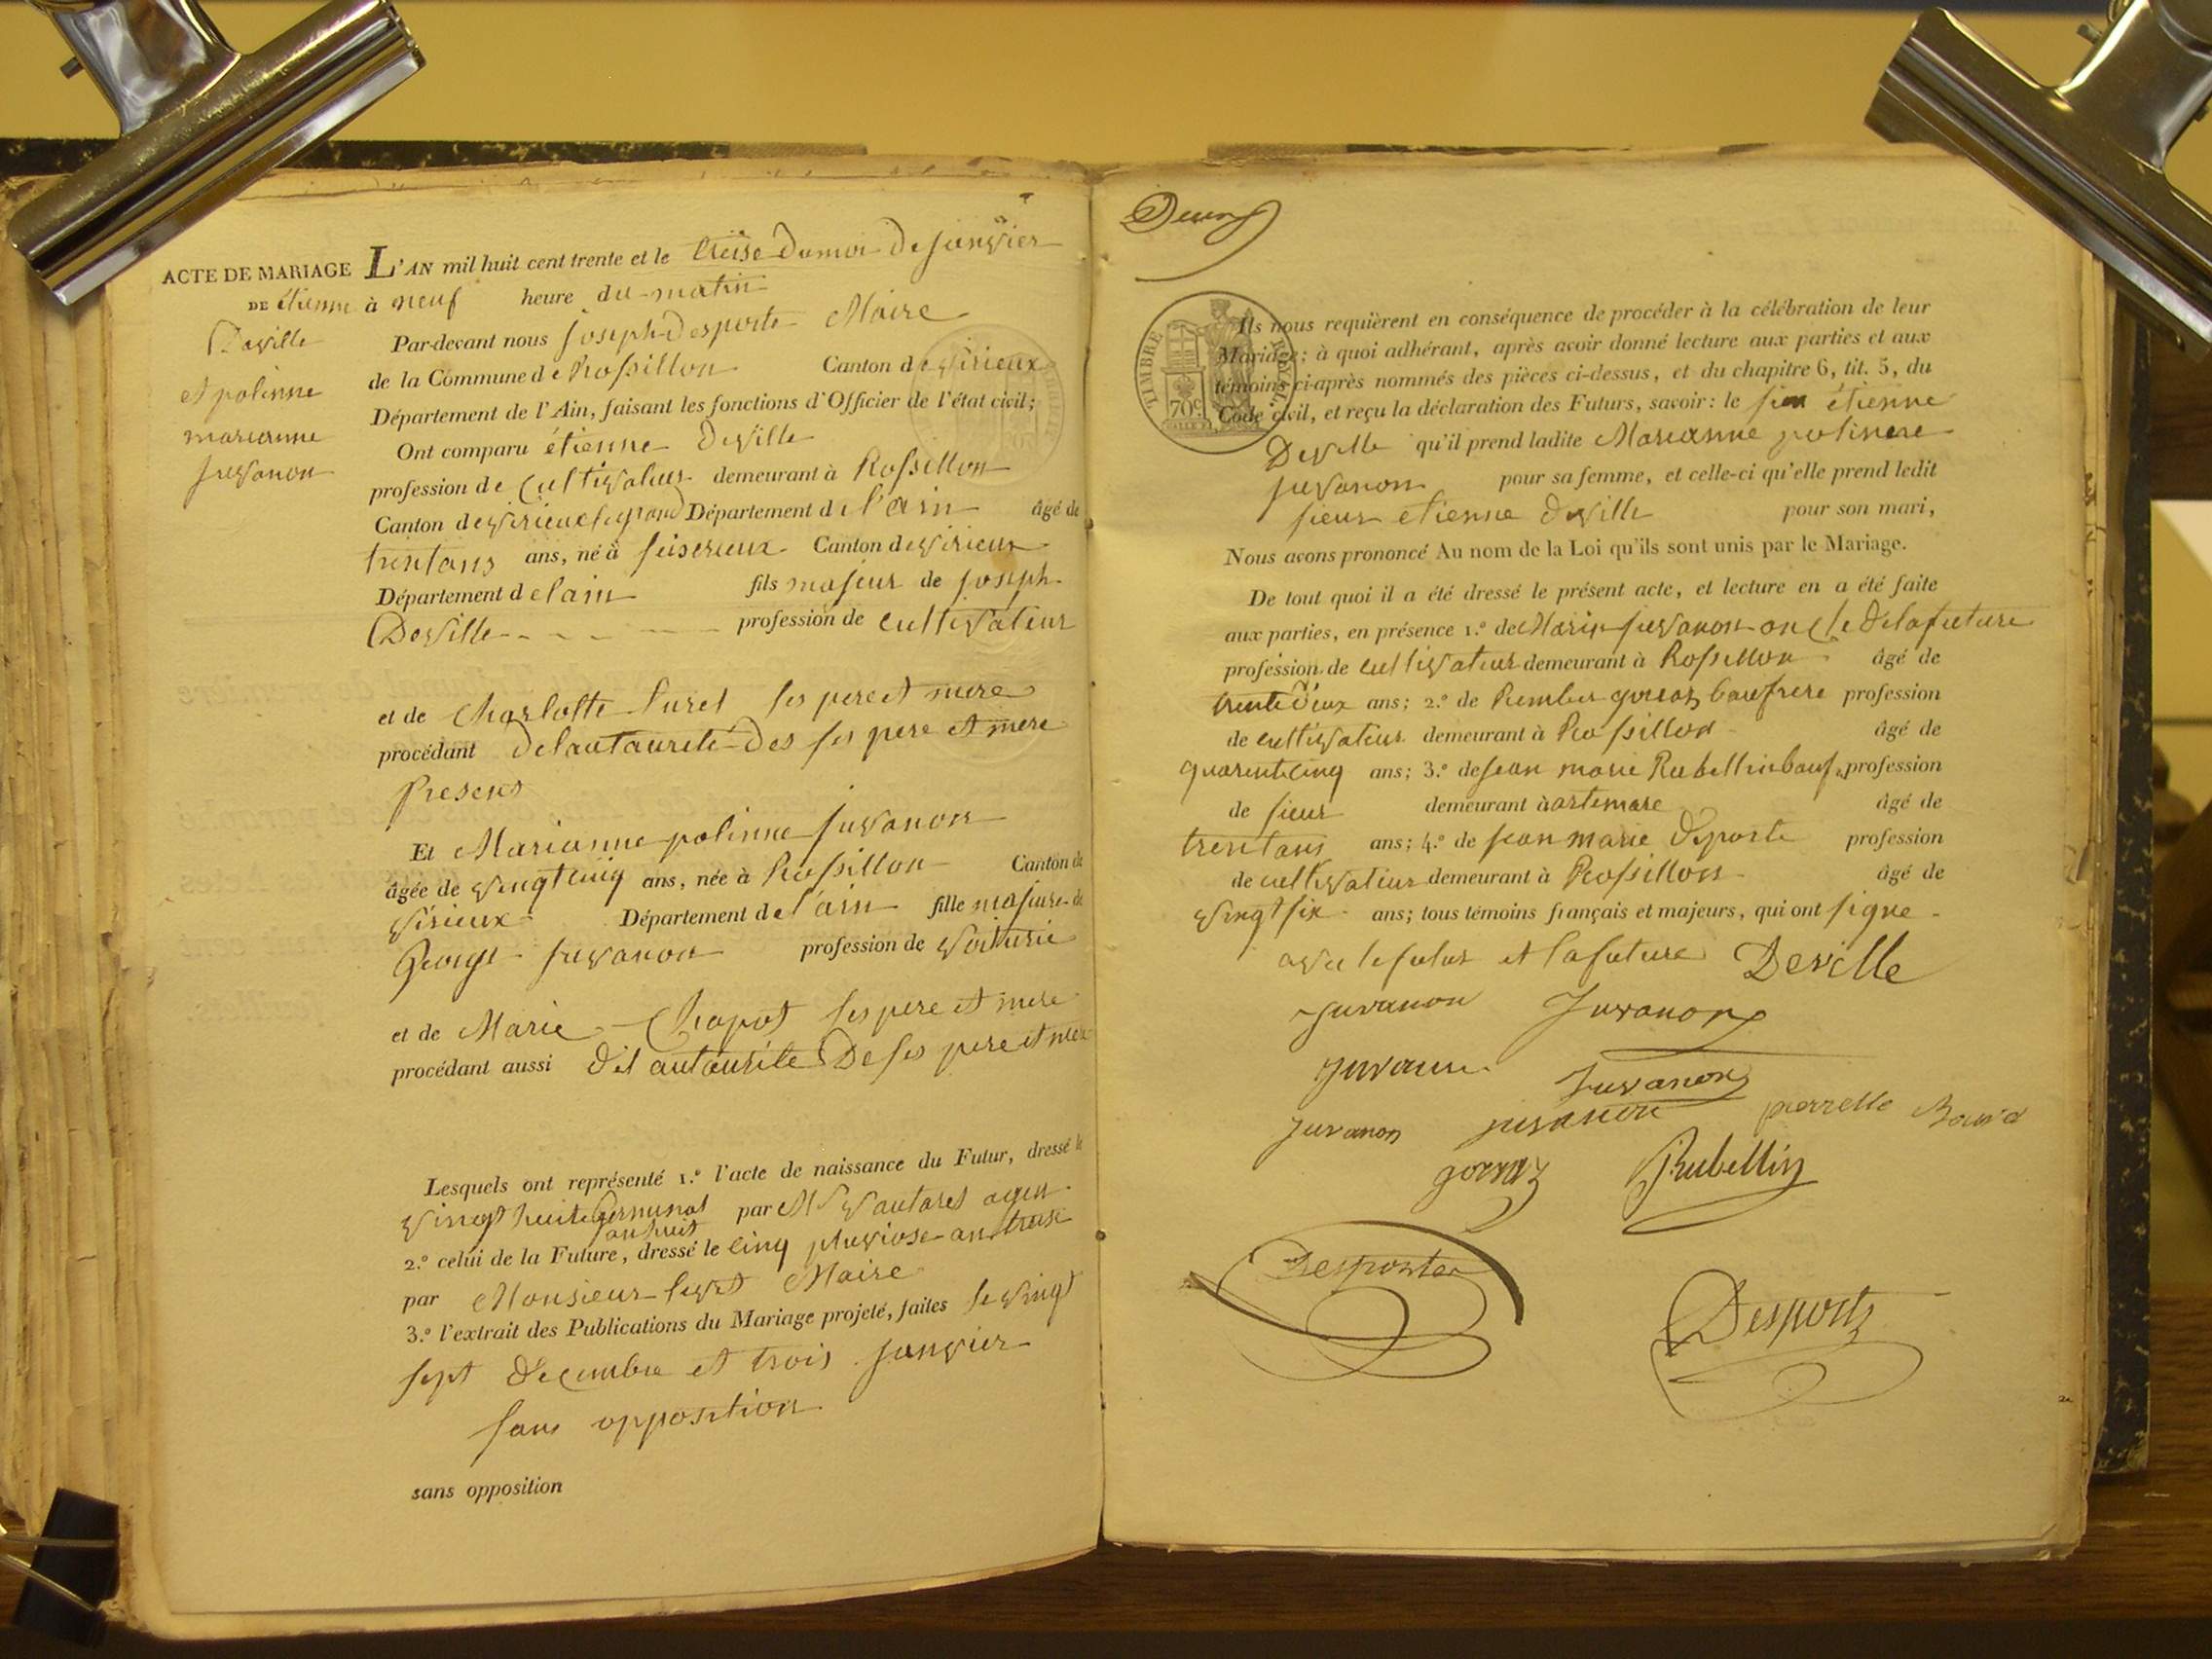 ACTE DE MARIAGE
DE étienne
Deville
et polinne
marianne
juvanon
L'AN mil huit cent trente et le treise du moi de janvier
à neuf heure du matin
Par-devant nous joseph Desporte Maire
de la Commune de Rossillon Canton de virieux
Département de l'Ain, faisant les fonctions d'Officier de l'état civil;
Ont comparu étienne deville
profession de cultivateur demeurant à Rossillon
Canton de virieux le grand Département de l'ain âgé de
trentans ans, né à Seiserieux Canton de virieux
Département de lain fils majeur de joseph
Deville profession de cultivateur
et de Charlotte ses pere et mere
procédant de lautaurité des ses pere et mere
presens
Et Marianne polinne juvanon
âgée de vingt cinq ans, née à Rossillon Canton de
virieux Département de l'ain fille majeure de
George juvanon profession de voiturié
et de Marie Chapot ses pere et mere
procédant aussi del autaurité De ses pere et mere
Lesquels ont représenté 1.º l'acte de naissance du Futur, dressé le
vingt huit Germinal par Mr vautaret agen
lan huit
2.º celui de la Future, dressé le cinq pluviose an treise
par Monsieur Maire
3.º l'extrait des Publications du Mariage projeté, faites le vingt
sept decembre et trois janvier
sans opposition
sans opposition
TIMBRE ROYAL
70 c.
Ils nous requièrent en conséquence de procéder à la célébration de leur
Mariage; à quoi adhérant, après avoir donné lecture aux parties et aux
témoins ci-après nommés des pièces ci-dessus, et du chapitre 6, tit. 5, du
Code civil, et reçu la déclaration des Futurs, savoir: le sieur étienne
Deville qu'il prend ladite Marianne polinne
juvanon pour sa femme, et celle-ci qu'elle prend ledit
sieur etienne deville pour son mari,
Nous avons prononcé Au nom de la Loi qu'ils sont unis par le Mariage.
De tout quoi il a été dressé le présent acte, et lecture en a été faite
aux parties, en présence 1.º de Marin juvanon oncle de la future
profession de cultivateur demeurant à Rossillon âgé de
trente deux ans; 2.º de Rember goiraz baufrere profession
de cultivateur demeurant à Rossillon âgé de
quarent cinq ans; 3.º de jean marie Rubellin bauf. profession
de sieur demeurant à artemare âgé de
trentans ans; 4.º de jean marie desporte profession
de cultivateur demeurant à Rossillon âgé de
vingt six ans; tous témoins français et majeurs, qui ont signé
avec le futur et la future Deville
juvanon Juvanon
juvanon Juvanon
juvanon juvanon pierrette
goiraz Rubellin
Desportes
Desportes